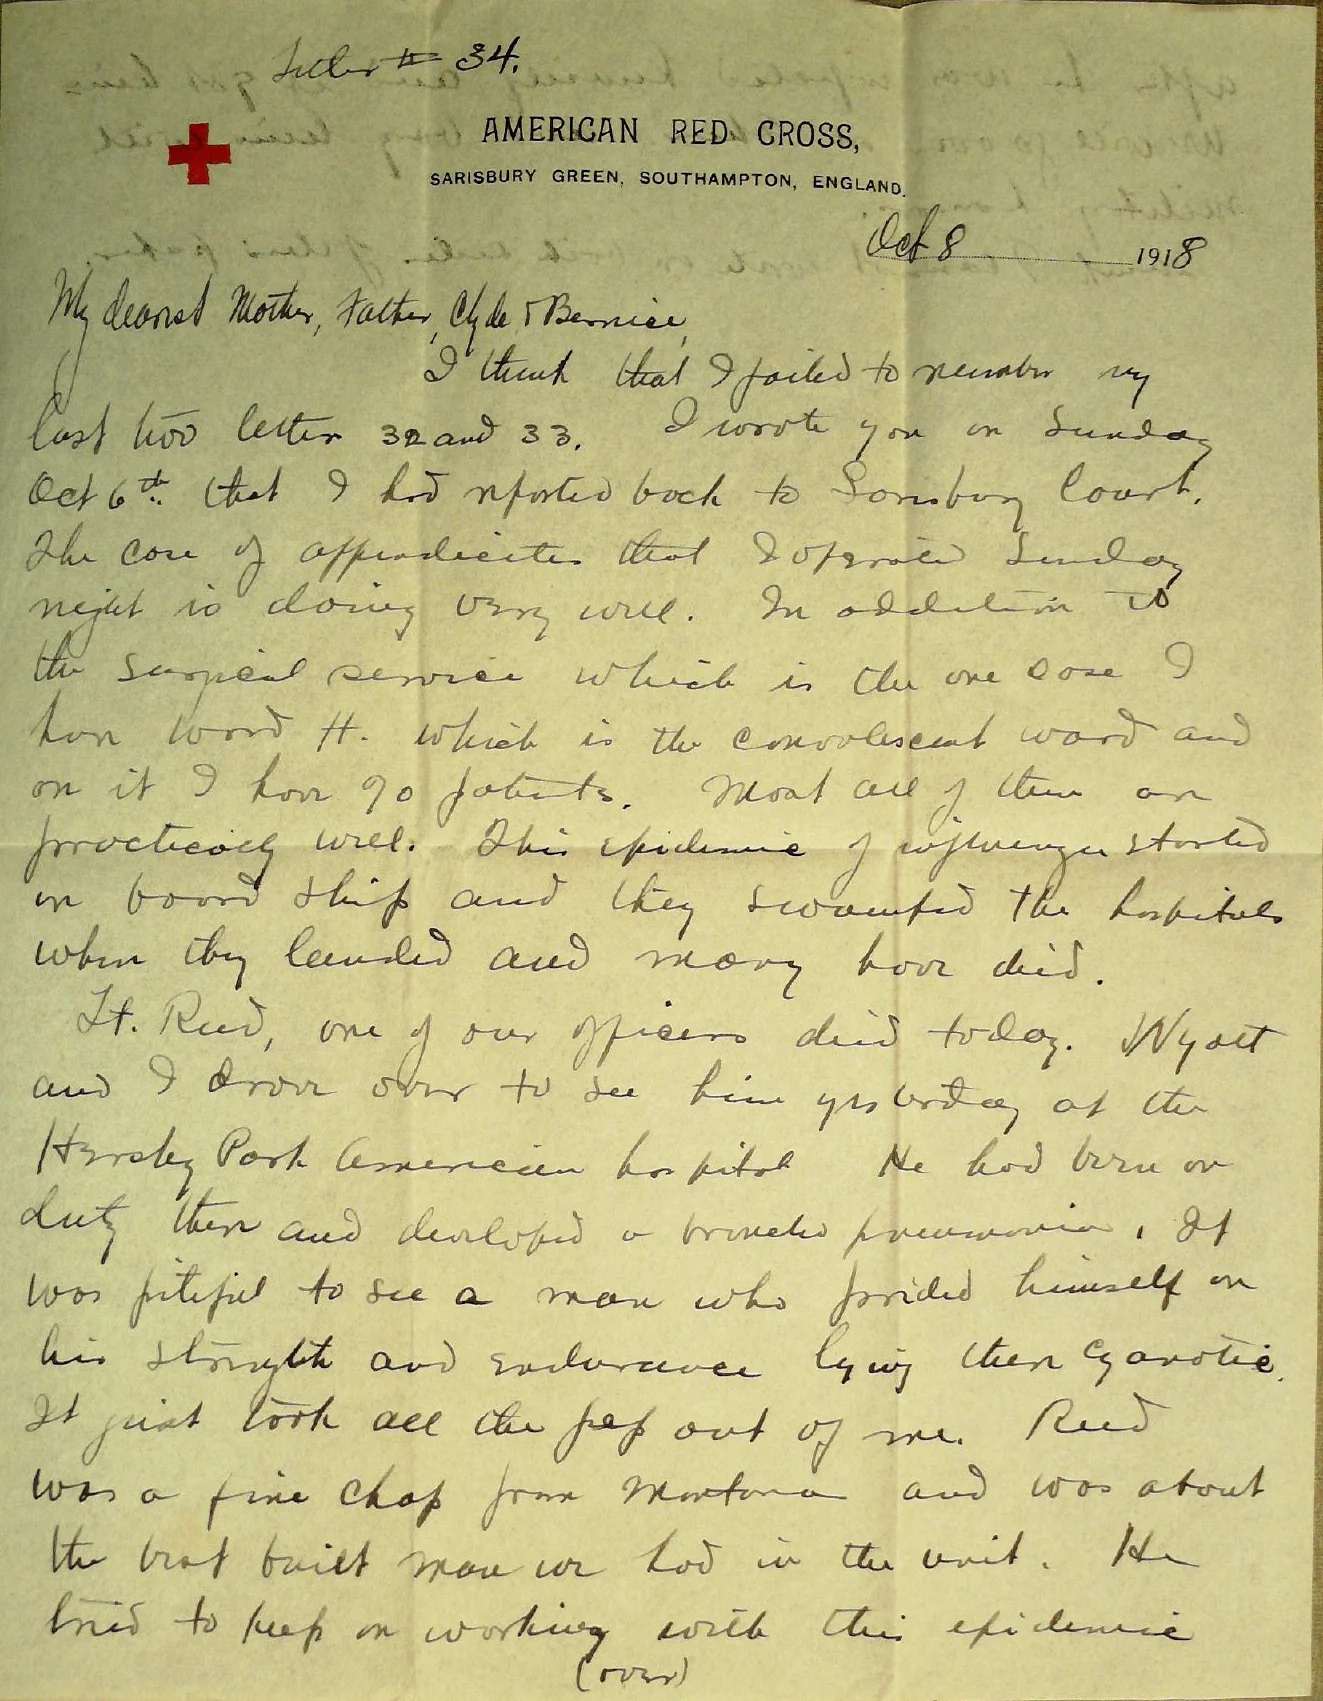 Letter # 34.
AMERICAN RED CROSS,
SARISBURY GREEN, SOUTHAMPTON, ENGLAND.
Oct 8 1918
My dearest Mother, Father, Clyde & Bernice,
I think that I failed to number my
last two letters 32 and 33. I wrote you on Sunday
Oct 6th. that I had reported back to Sarisbury Court.
The case of appendicites that I operated Sunday
night is doing very well. In addition to
the surgical service which is the one case I
have ward H. which is the convalescent ward and
on it I have 90 patients. Most all of them are
practically well. This epidemic of influenza started
on board ship and they swamped the hospitals
when they landed and many have died.
Lt. Reed, one of our officers died today. Wyatt
and I drove over to see him yesterday at the
Hursley Park American hospital He had been on
duty there and developed a broncho pneumonia. It
was pitiful to see a man who prided himself on
his strength and endurance lying there cyanotic.
It just took all the pep out of me. Reed
was a fine chap from Montana and was about
the best built man we had in the unit. He
tried to keep on working with this epidemic
(over)